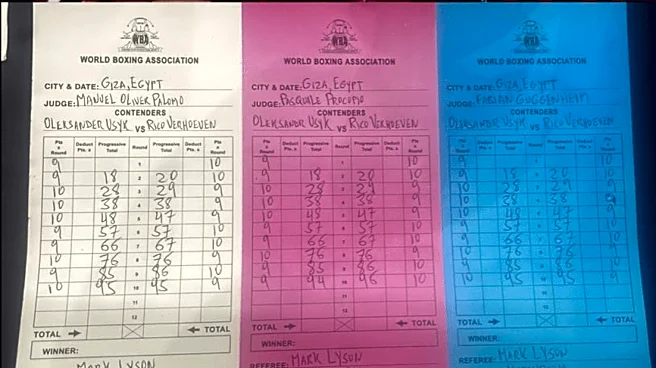 WBA
WORLD BOXING ASSOCIATION
CITY & DATE: GIZA, EGYPT
JUDGE: MANUEL OLIVER PALOMO
CONTENDERS
OLEKSANDER USYK VS RICO VERHOEVEN
Pts a Round Deduct Pts. # Progressive Total Round Progressive Total Deduct Pts. # Pts a Round
9 1 10
9 18 2 20 10
10 28 3 29 9
10 38 4 38 9
10 48 5 47 9
9 57 6 57 10
9 66 7 67 10
10 76 8 76 9
9 85 9 86 10
10 95 10 95 9
11
12
TOTAL TOTAL
WINNER:
MARK LYSON
WBA
WORLD BOXING ASSOCIATION
CITY & DATE: GIZA, EGYPT
JUDGE: PASQUALE PROCOPIO
CONTENDERS
OLEKSANDR USYK VS RICO VERHOEVEN
Pts a Round Deduct Pts. # Progressive Total Round Progressive Total Deduct Pts. # Pts a Round
9 1 10
9 18 2 20 10
10 28 3 29 9
10 38 4 38 9
10 48 5 47 9
9 57 6 57 10
9 66 7 67 10
10 76 8 76 9
9 85 9 86 10
9 94 10 96 10
11
12
TOTAL TOTAL
WINNER:
REFEREE: MARK LYSON
WBA
WORLD BOXING ASSOCIATION
CITY & DATE: GIZA, EGYPT
JUDGE: FABIAN GUGGENHEIM
CONTENDERS
OLEKSANDR USYK VS RICO VERHOEVEN
Pts a Round Deduct Pts. # Progressive Total Round Progressive Total Deduct Pts. # Pts a Round
9 1 10
9 18 2 20 10
10 28 3 29 9
10 38 4 38 9
10 48 5 47 9
9 57 6 57 10
9 66 7 67 10
10 76 8 76 9
9 85 9 86 10
10 95 10 95 9
11
12
TOTAL TOTAL
WINNER:
REFEREE: MARK LYSON